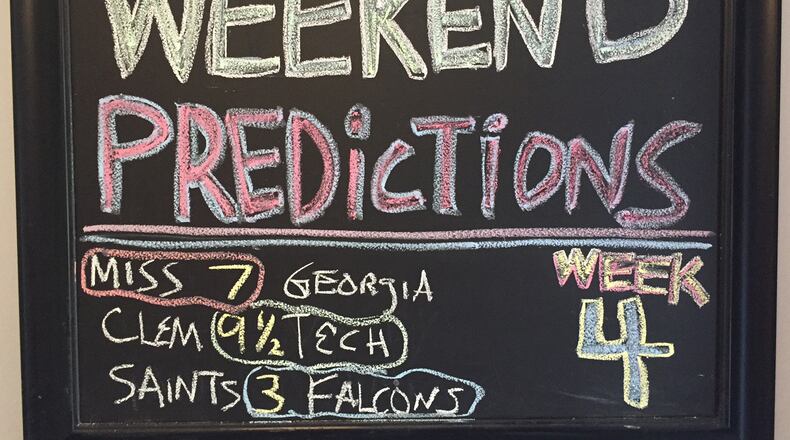 WEEKEND
PREDiCTiONS
MISS 7 GEORGIA
CLEM 9 ½ TECH
SAINTS 3 FALCONS
WEEK
4